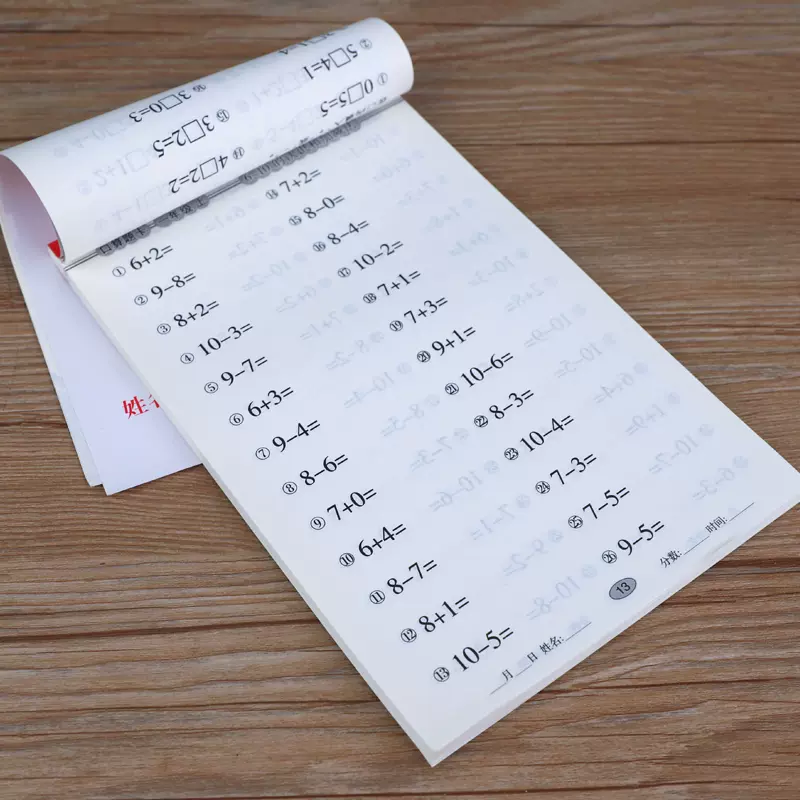 ① 6+2=
② 9−8=
③ 8+2=
④ 10−3=
⑤ 9−7=
⑥ 6+3=
⑦ 9−4=
⑧ 8−6=
⑨ 7+0=
⑩ 6+4=
⑪ 8−7=
⑫ 8+1=
⑬ 10−5=
⑭ 7+2=
⑮ 8−0=
⑯ 8−4=
⑰ 10−2=
⑱ 7+1=
⑲ 7+3=
⑳ 9+1=
㉑ 10−6=
㉒ 8−3=
㉓ 10−4=
㉔ 7−3=
㉕ 7−5=
㉖ 9−5=
__月__日 姓名:____ 13 分数:____ 时间:____
① 0□5=5
② 5□4=1
⑭ 4□2=2
⑮ 3□2=5
⑯ 3□0=3
姓